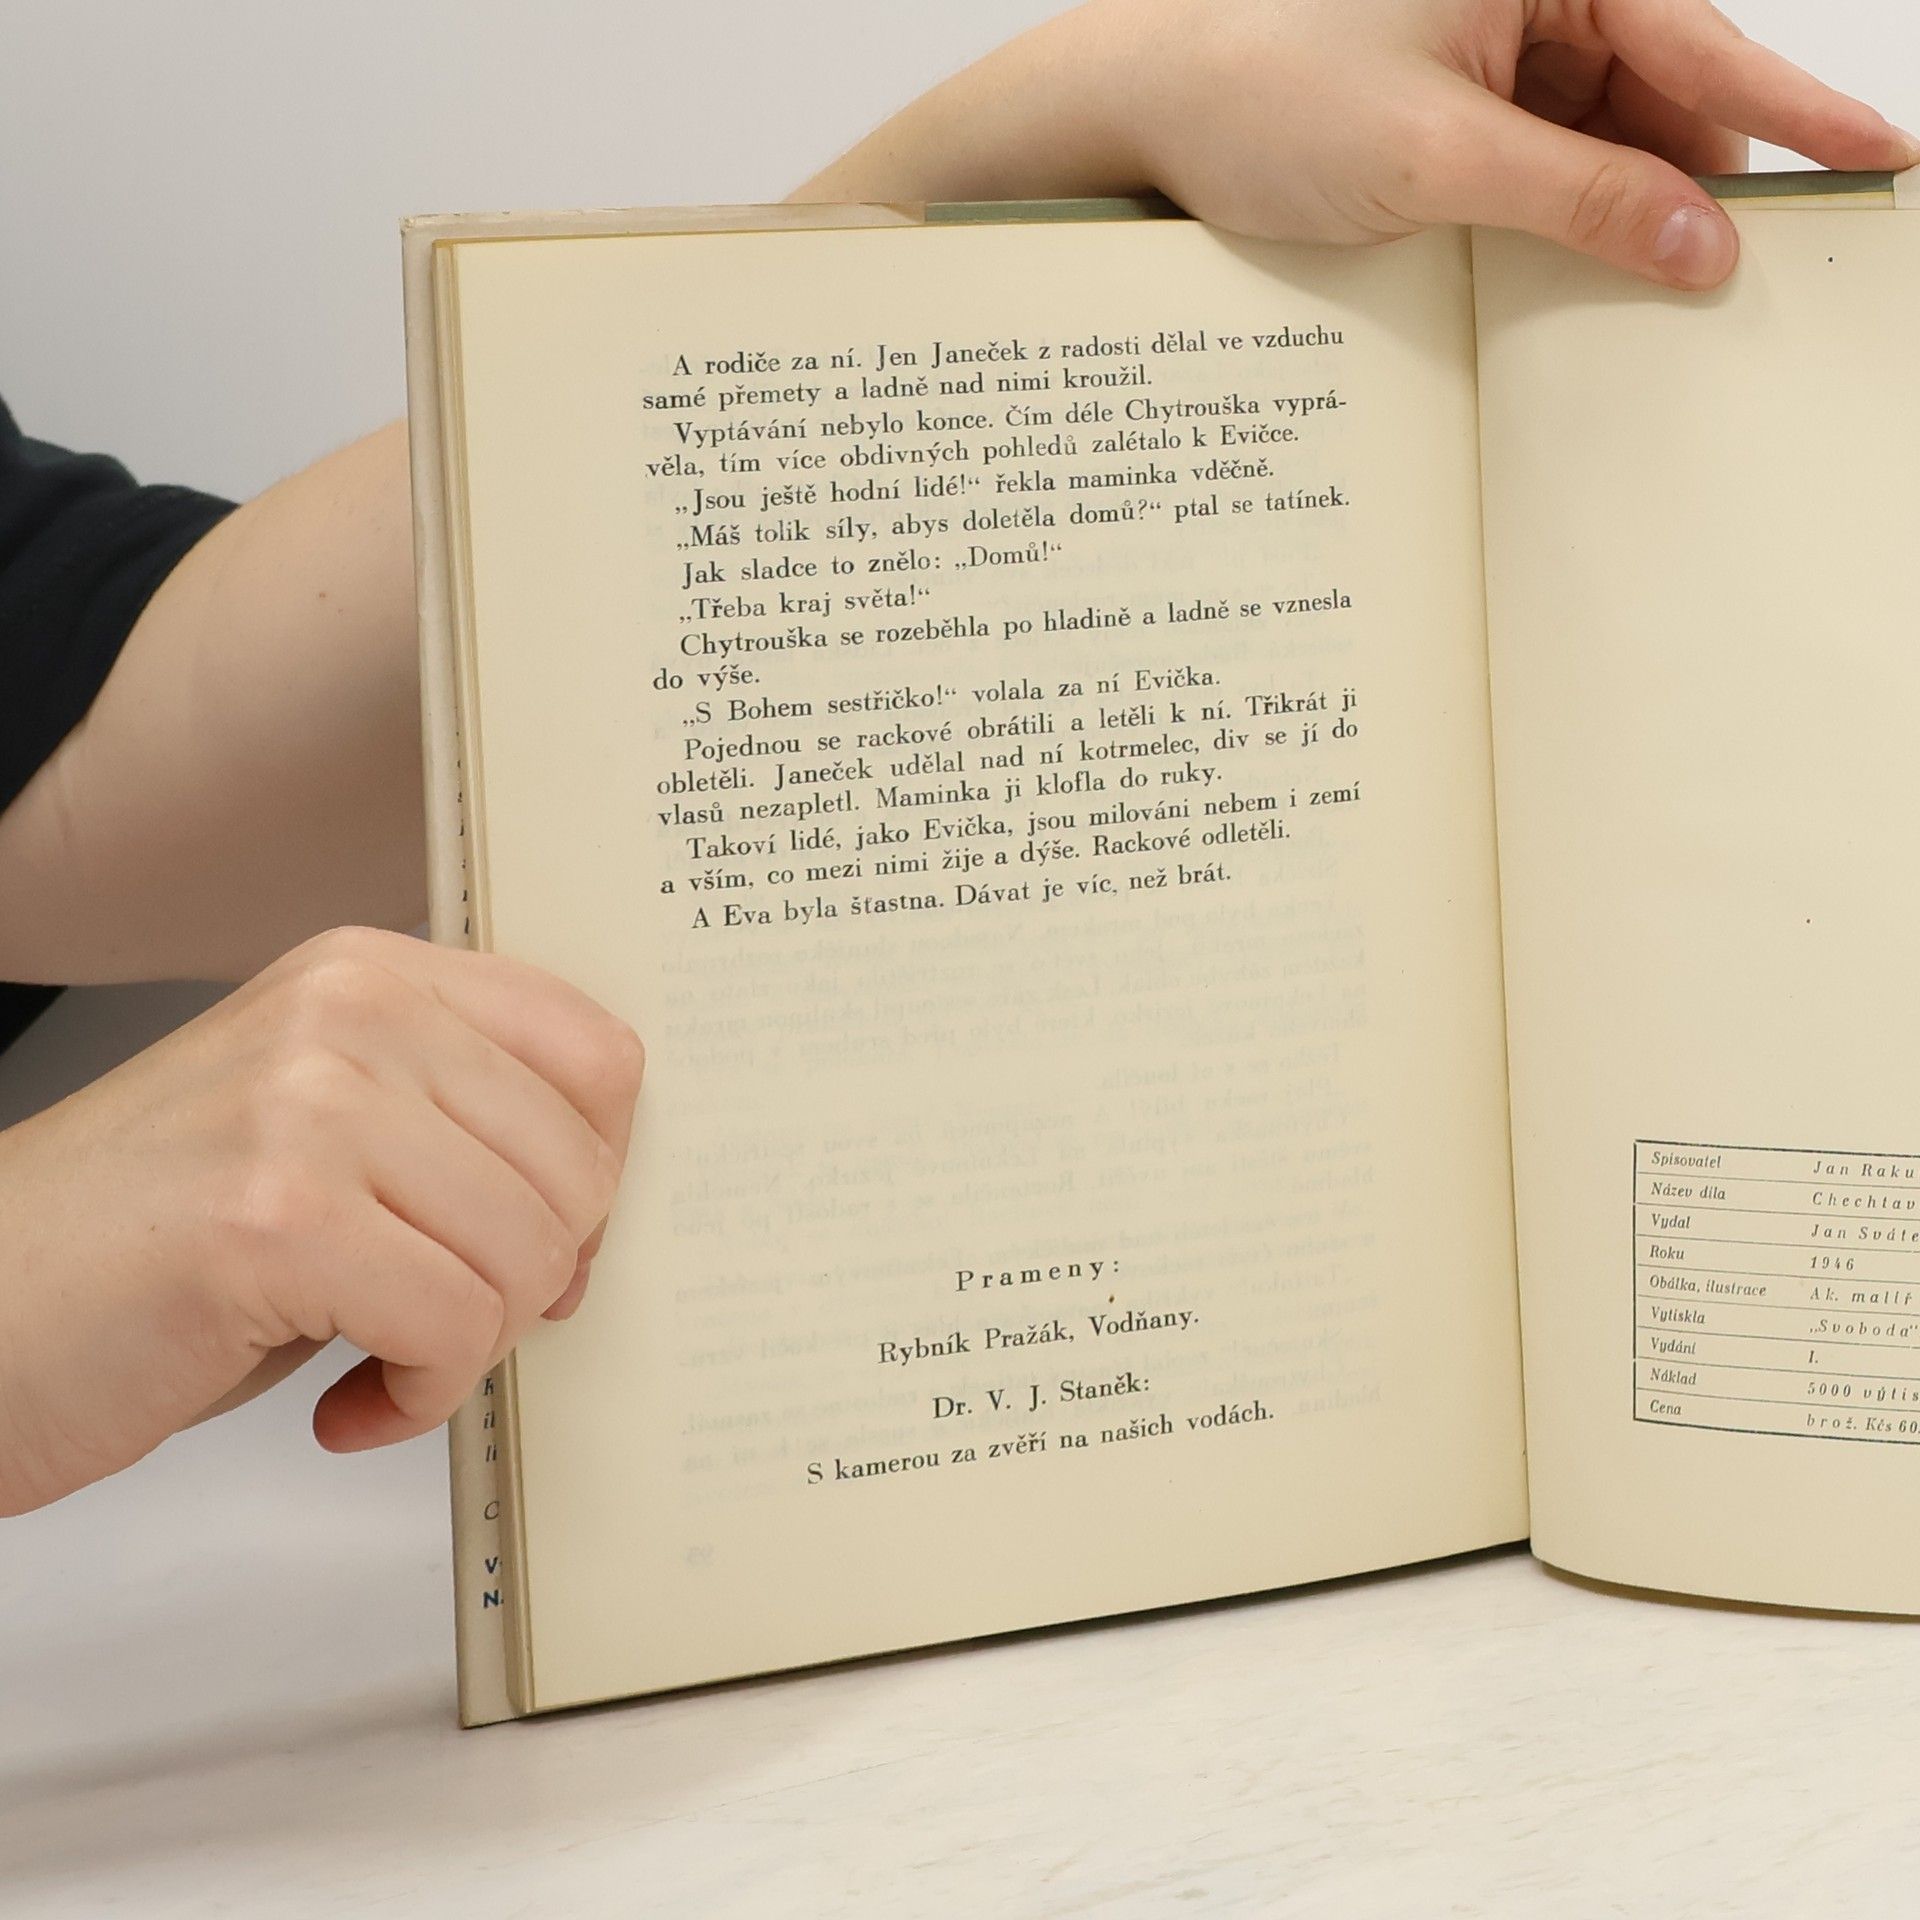 A rodiče za ní. Jen Janeček z radosti dělal ve vzduchu
samé přemety a ladně nad nimi kroužil.
Vyptávání nebylo konce. Čím déle Chytrouška vyprá-
věla, tím více obdivných pohledů zalétalo k Evičce.
„Jsou ještě hodní lidé!“ řekla maminka vděčně.
„Máš tolik síly, abys doletěla domů?“ ptal se tatínek.
Jak sladce to znělo: „Domů!“
„Třeba kraj světa!“
Chytrouška se rozeběhla po hladině a ladně se vznesla
do výše.
„S Bohem sestřičko!“ volala za ní Evička.
Pojednou se rackové obrátili a letěli k ní. Třikrát ji
obletěli. Janeček udělal nad ní kotrmelec, div se jí do
vlasů nezapletl. Maminka ji klofla do ruky.
Takoví lidé, jako Evička, jsou milováni nebem i zemí
a vším, co mezi nimi žije a dýše. Rackové odletěli.
A Eva byla šťastna. Dávat je víc, než brát.
Prameny:
Rybník Pražák, Vodňany.
Dr. V. J. Staněk:
S kamerou za zvěří na našich vodách.
Spisovatel Jan Raku
Název díla Chechtav
Vydal Jan Sváte
Roku 1946
Obálka, ilustrace Ak. malíř
Vytiskla „Svoboda“
Vydání I.
Náklad 5000 výtis
Cena brož. Kčs 60